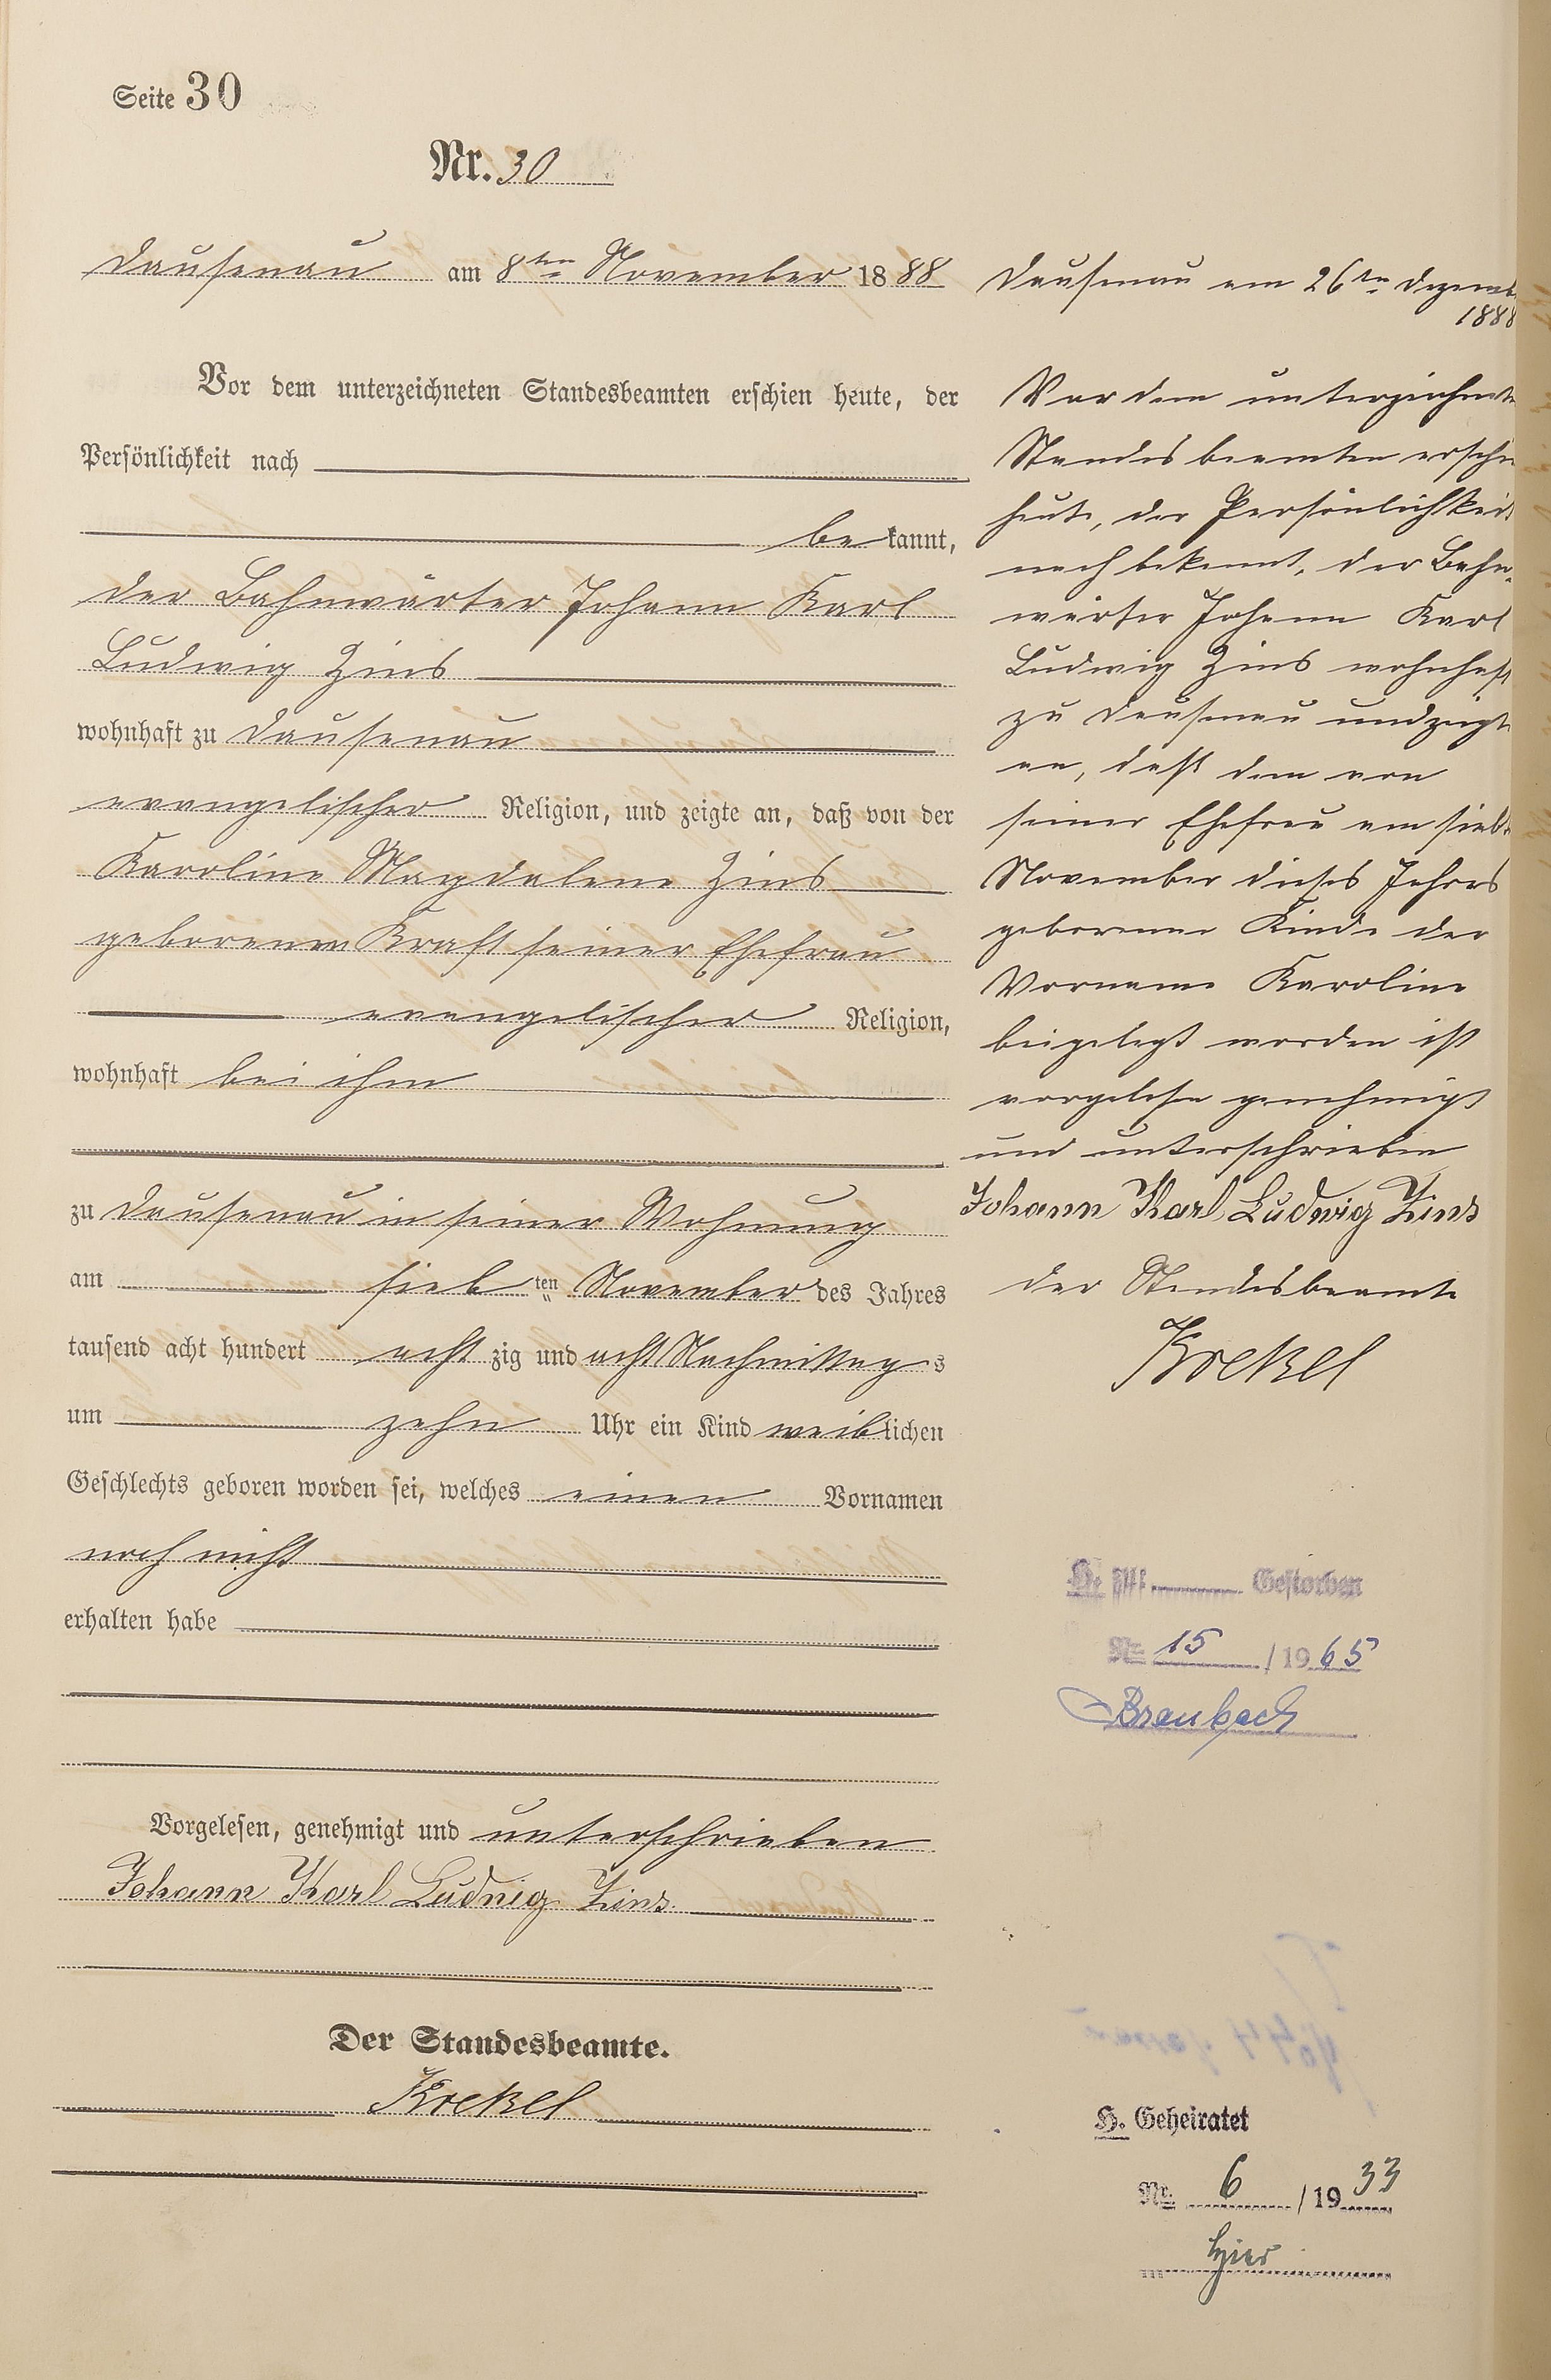 Seite 30
Nr. 30
Dausenau am 8ten November 1888
Vor dem unterzeichneten Standesbeamten erschien heute, der
Persönlichkeit nach
bekannt,
der Bahnwärter Johann Karl
Ludwig Zins
wohnhaft zu Dausenau
evangelischer Religion, und zeigte an, daß von der
Karoline Magdalene Zins
geborenen Kraft seiner Ehefrau
evangelischer Religion,
wohnhaft bei ihm
zu Dausenau in seiner Wohnung
am siebten November des Jahres
tausend acht hundert achtzig und acht Nachmittags
um zehn Uhr ein Kind weiblichen
Geschlechts geboren worden sei, welches einen Vornamen
noch nicht
erhalten habe
Vorgelesen, genehmigt und unterschrieben
Johann Karl Ludwig Zins.
Der Standesbeamte.
Krekel
Dausenau am 26ten Dezemb
1888
Vor dem unterzeichnete
Standesbeamten erschie
heute, der Persönlichkeit
nach bekannt, der Bahn-
wärter Johann Karl
Ludwig Zins wohnhaft
zu Dausenau und zeigte
an, daß dem von
seiner Ehefrau am siebt
November dieses Jahres
geborenne Kinde der
Vorname Karoline
beigelegt worden ist
vorgelesen genehmigt
und unterschrieben
Johann Karl Ludwig Zins
der Standesbeamte
Krekel
Gestorben
Nr. 15 / 1965
Braubach
H. Geheiratet
Nr. 6 / 1933
hier